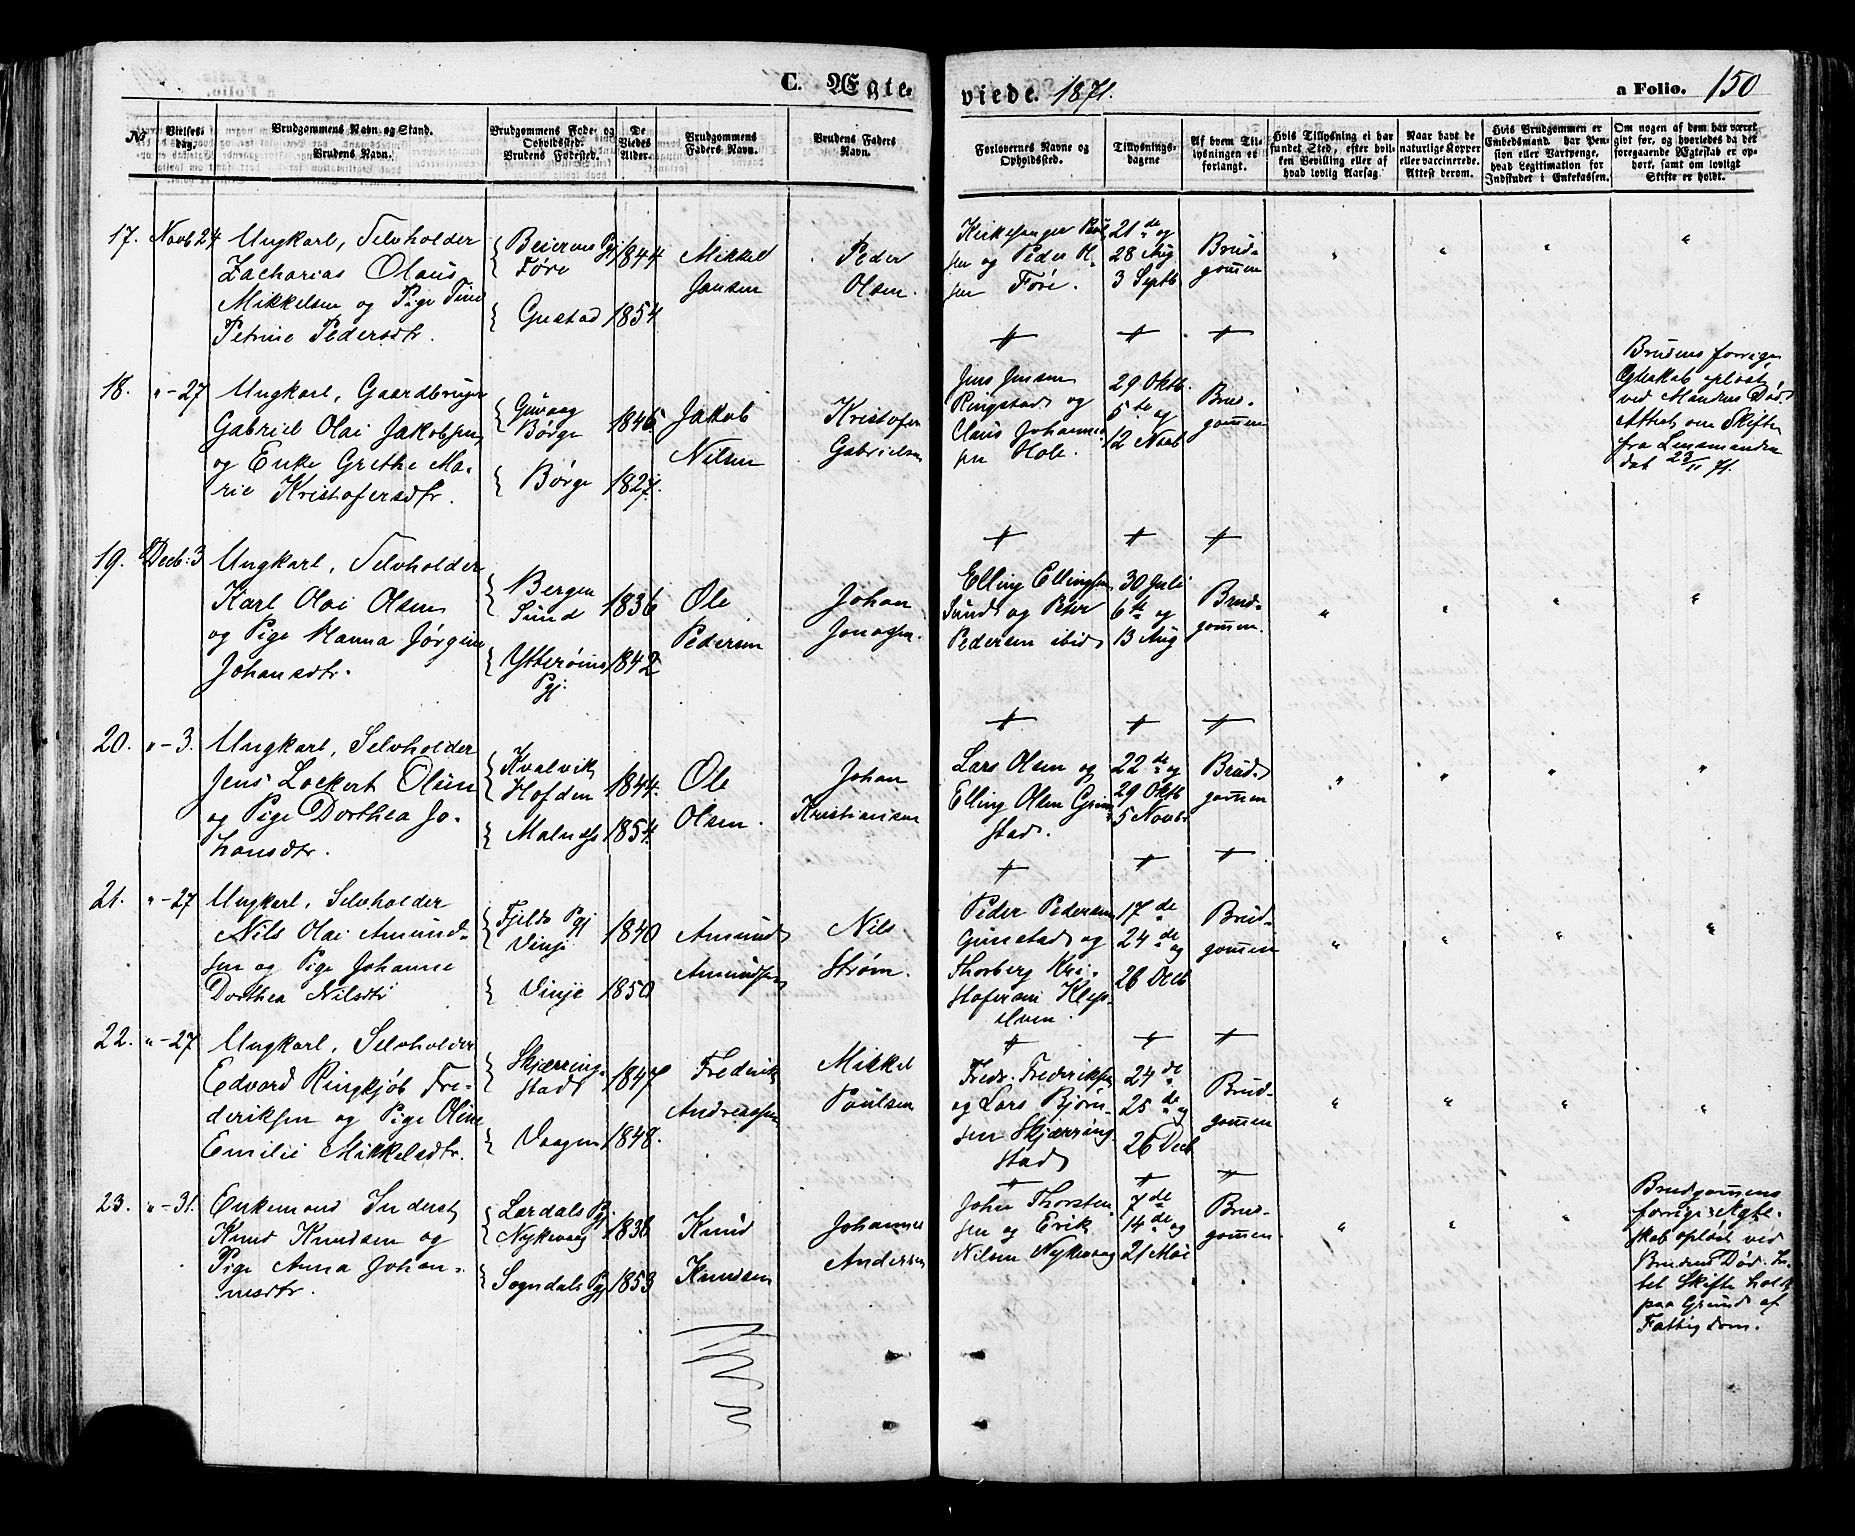 C. Ægte-
viede. 1871.
a Folio. 150
No.
Vielses-
dag.
Brudgommens Navn og Stand.
Brudens Navn.
Brudgommens Føde- og
Opholdssted.
Brudens Fødested.
De
Viedes
Alder.
Brudgommens
Faders Navn.
Brudens Faders
Navn.
Forlovernes Navne og
Opholdssted.
Tillysnings-
dagene
Af hvem Til-
lysningen er
forlangt.
Hvis Tillysning ei har
fundet Sted, efter hvil-
ken Bevilling eller af
hvad lovlig Aarsag.
Naar havt de
naturlige Kopper
eller vaccinerede.
Attest derom.
Hvis Brudgommen er
Embedsmand, har Pen-
sion eller Vartpenge,
hvad Legitimation for
Indskudet i Enkekassen.
Om nogen af dem har været
givt før, og hvorledes da det
foregaaende Ægteskab er op-
hørt, samt om lovligt
Skifte er holdt.
17. Novb 24
Ungkarl, Selvholder
Zacharias Olaus
Mikkelsen og Pige Tine
Petrine Pedersdtr.
Beierens Pgj
Føre
Gustad
1844
1854
Mikkel
Jansen
Peder
Olsen.
Kirkesanger
sen og Peder Ol-
sen Føre.
21de og
28 Aug
3 Septb
Brud-
gommen
18. " - 27
Ungkarl, Gaardbruger
Gabriel Olai Jakobsen
og Enke Grethe Ma-
rie Kristofersdtr.
Guvaag
Børge
Børge
1846
1827.
Jakob
Nilsen
Kristofer
Gabrielsen
Jens Jensen
Ringstad og
Claus Johanne-
sen Hole.
29 Oktb.
5te og
12 Novb
Brud-
gommen
Brudens forrige
Ægteskab opløst
ved Mandens Død.
Attest om Skifte
fra Lensmanden
dat 23/11 71.
19. Decb: 3
Ungkarl, Selvholder
Karl Olai Olsen
og Pige Hanna Jørgine
Johansdtr.
Bergen
Sund
Ytterøins
Pgj.
1836
1842
Ole
Pedersen
Johan
Jonassen.
Elling Ellingsen
Sund og Peter
Pedersen ibid
30 Juli
6te og
13 Aug
Brud-
gommen.
20. " - 3.
Ungkarl, Selvholder
Jens Lockert Olsen
og Pige Dorthea Jo-
hansdtr.
Kvalvik
Hofden
Malnæss
1844.
1854.
Ole
Olsen.
Johan
Kristiansen
Lars Olsen og
Elling Olsen Grim-
stad.
22de og
29 Oktb
5 Novb.
Brud-
gommen
21. " - 27
Ungkarl, Selvholder
Nils Olai Amund-
sen og Pige Johanne
Dorthea Nilsdtr
Fjelds Pgj
Vinje
Vinje
1840
1850
Amund
Amundsen
Nils
Strøm.
Peder Pedersen
Gunstad og
Thorberg Kri-
stofersen Klep-
elven.
17de
24de og
26 Decb
Brud-
gommen
22. " - 27
Ungkarl, Selvholder
Edvard Ringkjøb Fre-
deriksen og Pige Oline
Emilie Mikkelsdtr.
Skjærring-
stad
Vaagen
1847
1848.
Frederik
Andreassen
Mikkel
Paulsen
Fredr. Frederiksen
og Lars Bjørn-
sen Skjærring-
stad
24de
25de og
26 Decb
Brud-
gommen
23. " - 31.
Enkemand Inderst
Knud Knudsen og
Pige Anna Johan-
nesdtr.
Lærdals Pgj.
Nykvaag
Sogndals Pgj
1838
1853
Knud
Knudsen
Johannes
Andersen
John Thorsten-
sen og Erik
Nilsen Nykvaag
7de
14de og
21 Mai
Brud-
gommen.
Brudgommens
forrige Ægte-
skab opløst ved
Brudens Død. In-
tet Skifte holdt
paa Grund af
Fattigdom.